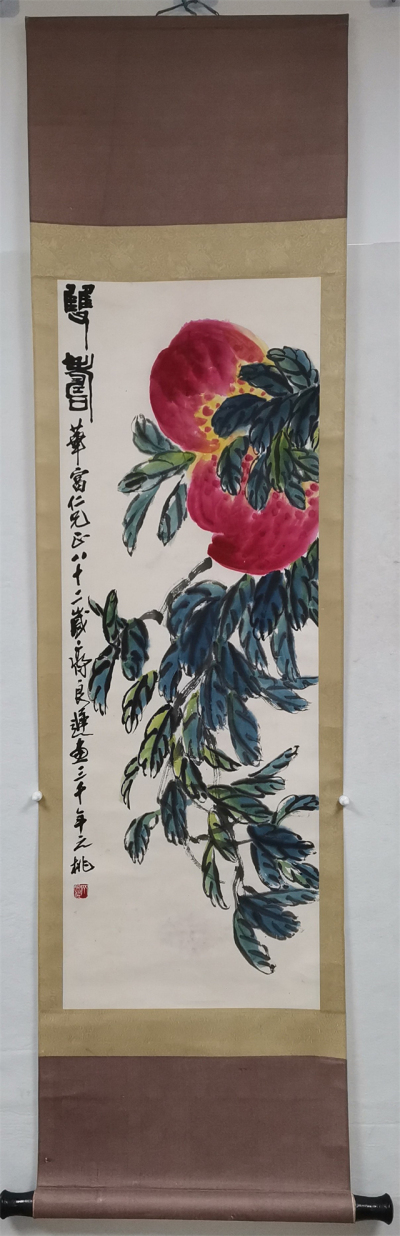 雙壽
華富仁兄正八十二歲齊良遲畫三千年之桃